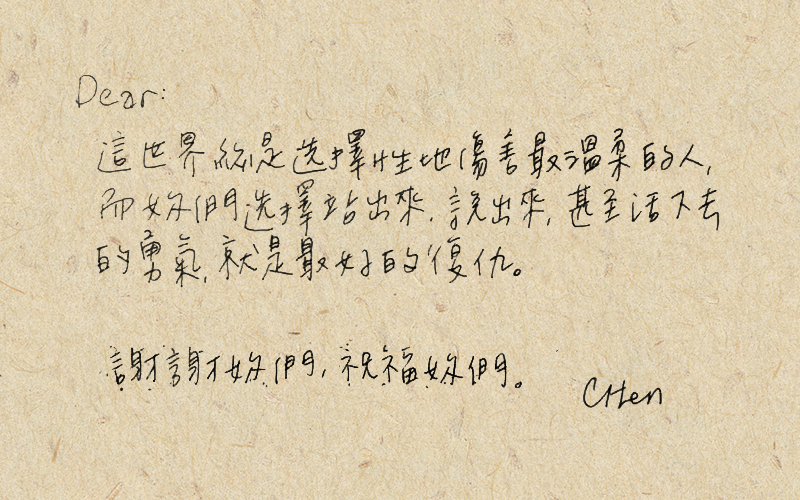 Dear:
這世界總是选擇性地傷害最溫柔的人,
而妳們选擇站出來,說出來,甚至活下去
的勇氣,就是最好的復仇。
謝謝妳們,祝福妳們。
CHen